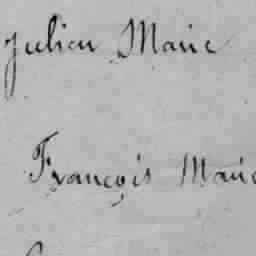 Julien Marie
François Marie